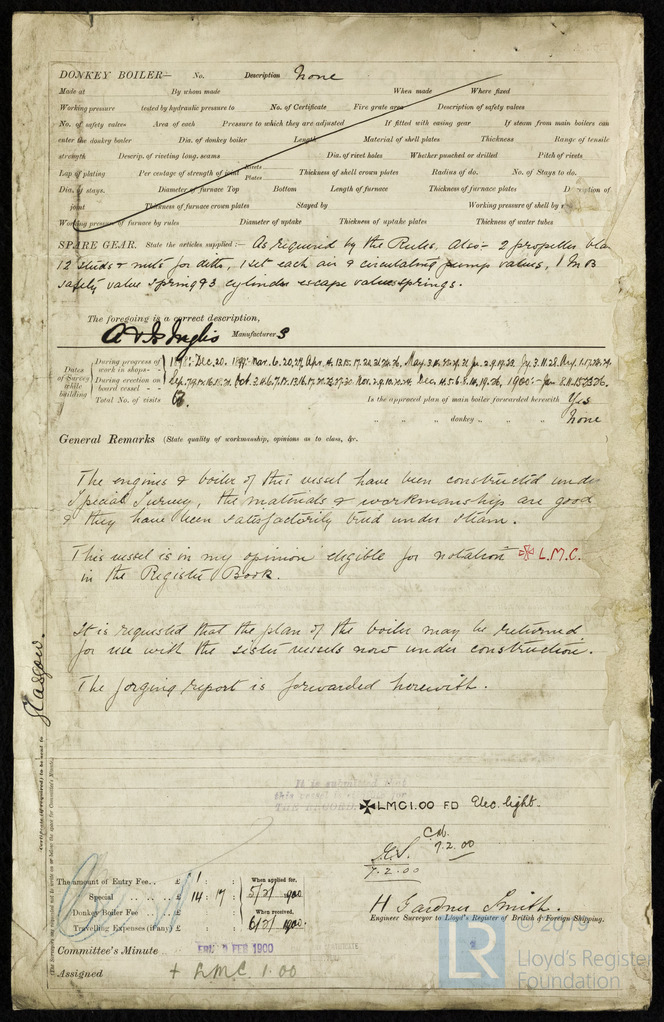 DONKEY BOILER— No. Description None
Made at By whom made When made Where fixed
Working pressure tested by hydraulic pressure to No. of Certificate Fire grate area Description of safety valves
No. of safety valves Area of each Pressure to which they are adjusted If fitted with easing gear If steam from main boilers can
enter the donkey boiler Dia. of donkey boiler Length Material of shell plates Thickness Range of tensile
strength Descrip. of riveting long. seams Dia. of rivet holes Whether punched or drilled Pitch of rivets
Lap of plating Per centage of strength of joint Rivets Plates Thickness of shell crown plates Radius of do. No. of Stays to do.
Dia. of stays. Diameter of furnace Top Bottom Length of furnace Thickness of furnace plates Description of
joint Thickness of furnace crown plates Stayed by Working pressure of shell by
Working pressure of furnace by rules Diameter of uptake Thickness of uptake plates Thickness of water tubes
SPARE GEAR. State the articles supplied:— As required by the Rules, Also:- 2 propeller bla
12 studs & nuts for ditto, 1 set each air & circulating pump valves, 1 M B
safety valve spring & 3 cylinder escape valve springs.
The foregoing is a correct description,
A & J Inglis Manufacturers
Dates of Survey while building
During progress of work in shops - -
During erection on board vessel - - -
Total No. of visits
Is the approved plan of main boiler forwarded herewith Yes
" " " donkey " " " None
General Remarks (State quality of workmanship, opinions as to class, &c.
The engines & boiler of this vessel have been constructed unde
Special Survey, the materials & workmanship are good
& they have been satisfactorily tried under steam.
This vessel is in my opinion eligible for notation ✠ L.M.C.
in the Register Book.
It is requested that the plan of the boiler may be returned
for use with the sister vessels now under construction.
The forging report is forwarded herewith.
Glasgow.
Certificate (if required) to be sent to
(The Surveyors are requested not to write on or below the space for Committee's Minute.)
It is submitted that
this vessel
THE RECORD
✠LMC 1.00 FD Elec. light.
7.2.00
7.2.00
The amount of Entry Fee. . £ 1 : : When applied for,
Special . . . . . £ 14 : 17 : 5/2/1900
Donkey Boiler Fee . . . £ : : When received,
Travelling Expenses (if any) £ : : 6/2/1900
H Gardner Smith.
Engineer Surveyor to Lloyd's Register of British & Foreign Shipping.
Committee's Minute FRI. FEB 1900
Assigned + LMC 1.00
© 2019
LR
Lloyd's Register
Foundation